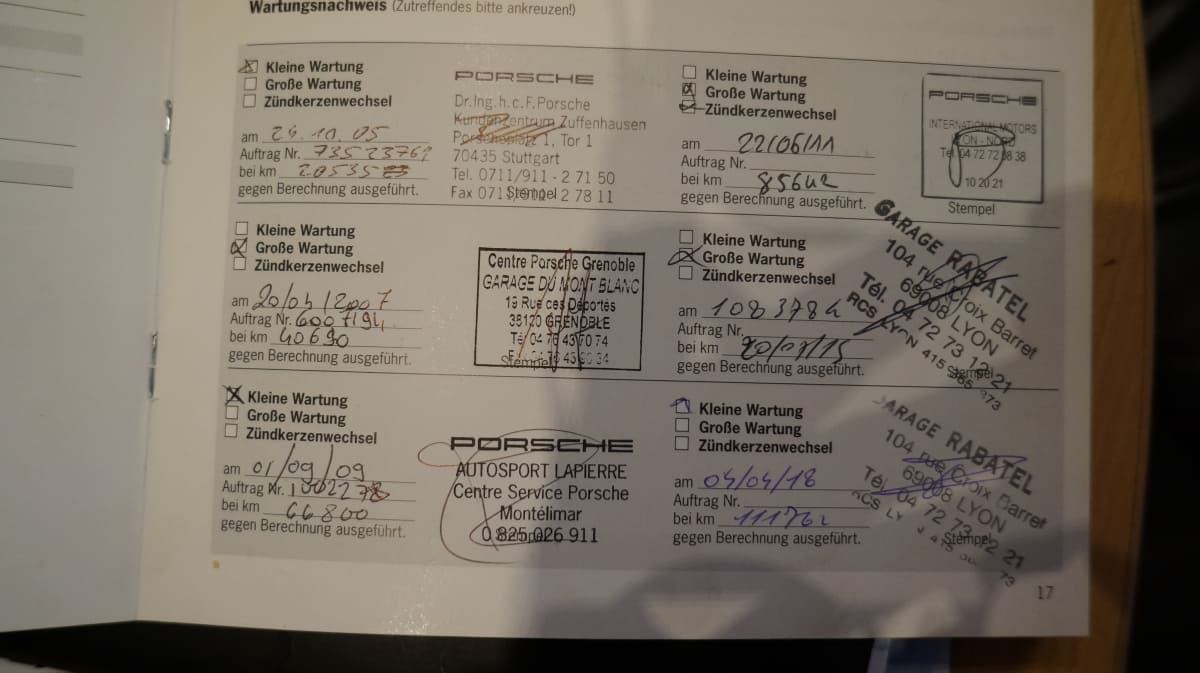 Wartungsnachweis (Zutreffendes bitte ankreuzen!)
Kleine Wartung
Große Wartung
Zündkerzenwechsel
am 24.10.05
Auftrag Nr.
bei km
gegen Berechnung ausgeführt.
PORSCHE
Dr.Ing.h.c.F.Porsche
Kundenzentrum Zuffenhausen
Porscheplatz 1, Tor 1
70435 Stuttgart
Tel. 0711/911 - 2 71 50
Fax 0711/911 - 2 78 11
Stempel
Kleine Wartung
Große Wartung
Zündkerzenwechsel
am 20/04/2007
Auftrag Nr.
bei km 40690
gegen Berechnung ausgeführt.
Centre Porsche Grenoble
GARAGE DU MONT BLANC
19 Rue des Déportés
38120 GRENOBLE
Stempel
Kleine Wartung
Große Wartung
Zündkerzenwechsel
am 01/09/09
Auftrag Nr.
bei km 66800
gegen Berechnung ausgeführt.
PORSCHE
AUTOSPORT LAPIERRE
Centre Service Porsche
Montélimar
0 825 026 911
Kleine Wartung
Große Wartung
Zündkerzenwechsel
am 22/06/11
Auftrag Nr.
bei km 85642
gegen Berechnung ausgeführt.
PORSCHE
INTERNATIONAL MOTORS
LYON - NORD
10 20 21
Stempel
Kleine Wartung
Große Wartung
Zündkerzenwechsel
am 108378
Auftrag Nr.
bei km
gegen Berechnung ausgeführt.
GARAGE RABATEL
104 rue Croix Barret
69008 LYON
Tél. 04 72 73 12 21
RCS LYON 415
Stempel
Kleine Wartung
Große Wartung
Zündkerzenwechsel
am 04/04/18
Auftrag Nr.
bei km
gegen Berechnung ausgeführt.
GARAGE RABATEL
104 rue Croix Barret
69008 LYON
Tél. 04 72 73 12 21
RCS LY
Stempel
17